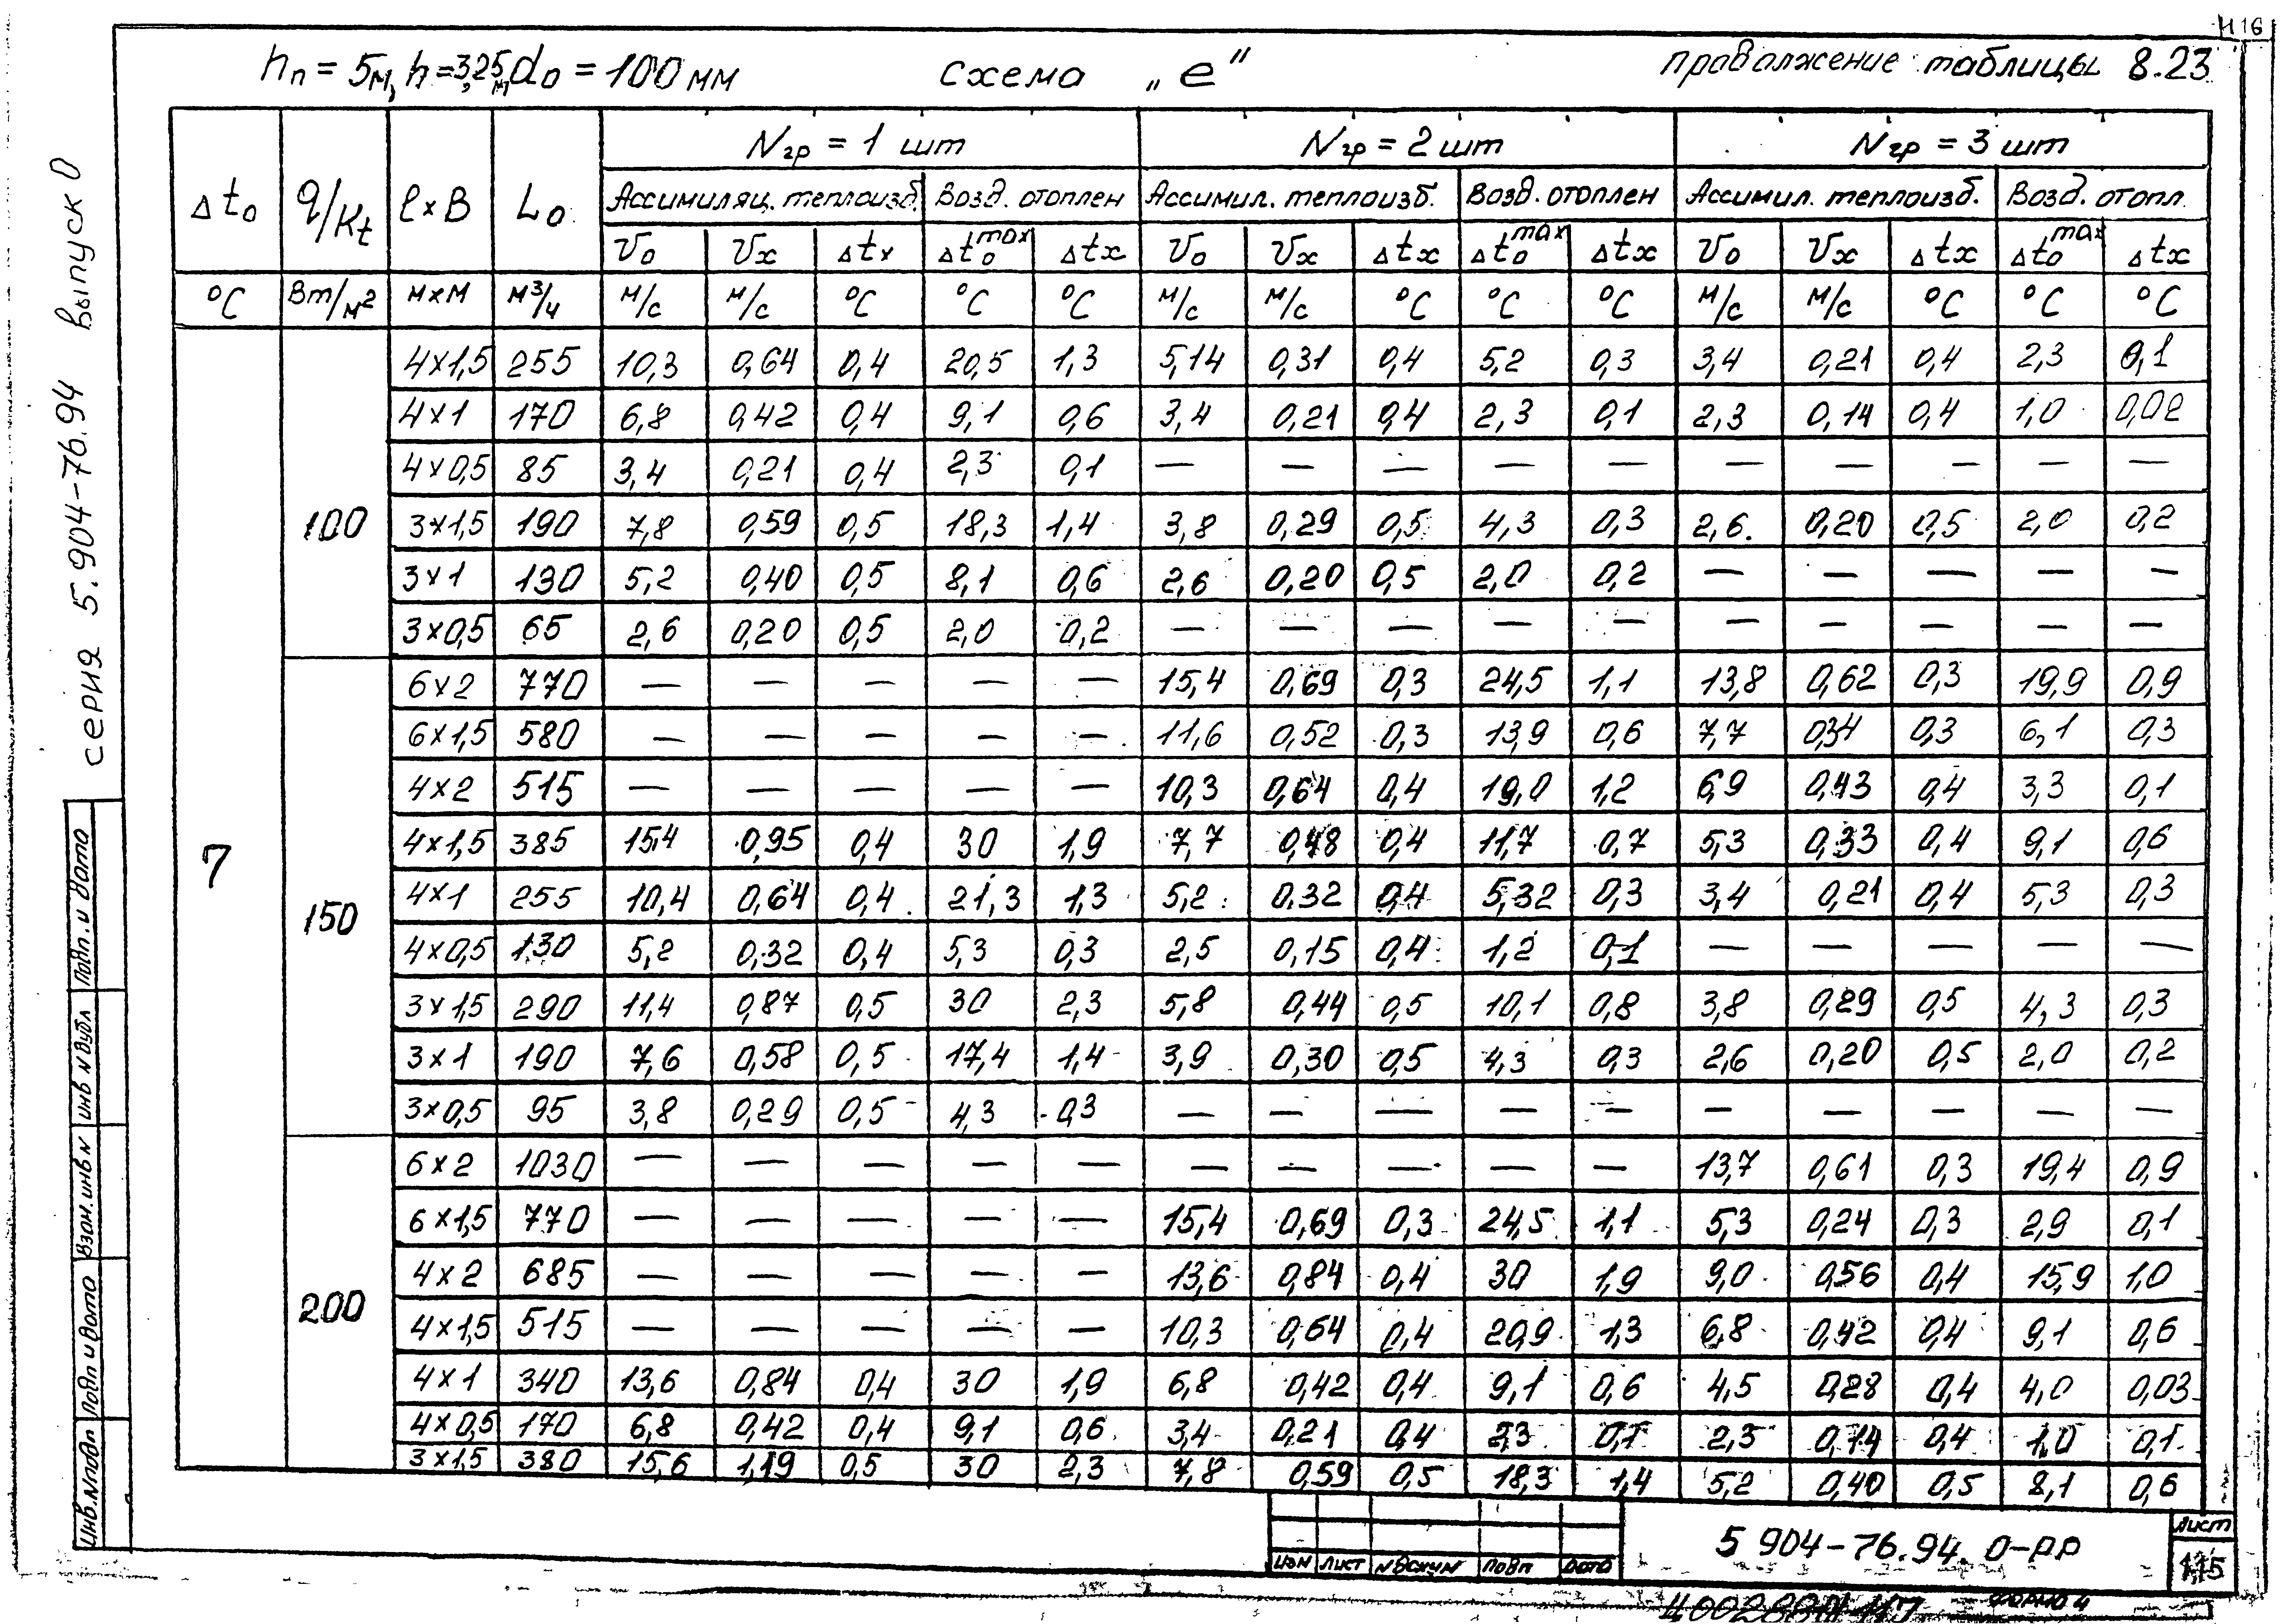 416
hп = 5м, h = 3,25м, d₀ = 100 мм схема „е" продолжение таблицы 8.23
серия 5.904-76.94 выпуск 0
Δt₀ q/Kt ℓ×В L₀ Nгр = 1 шт Nгр = 2 шт Nгр = 3 шт
Ассимиляц. теплоизб. Возд. отоплен Ассимил. теплоизб. Возд. отоплен Ассимил. теплоизб. Возд. отопл.
V₀ Vx Δtx Δt₀max Δtx V₀ Vx Δtx Δt₀max Δtx V₀ Vx Δtx Δt₀max Δtx
°С Вт/м² м×м м³/ч м/с м/с °С °С °С м/с м/с °С °С °С м/с м/с °С °С °С
7
100
4×1,5 255 10,3 0,64 0,4 20,5 1,3 5,14 0,31 0,4 5,2 0,3 3,4 0,21 0,4 2,3 0,1
4×1 170 6,8 0,42 0,4 9,1 0,6 3,4 0,21 0,4 2,3 0,1 2,3 0,14 0,4 1,0 0,02
4×0,5 85 3,4 0,21 0,4 2,3 0,1 — — — — — — — — — —
3×1,5 190 7,8 0,59 0,5 18,3 1,4 3,8 0,29 0,5 4,3 0,3 2,6 0,20 0,5 2,0 0,2
3×1 130 5,2 0,40 0,5 8,1 0,6 2,6 0,20 0,5 2,0 0,2 — — — — —
3×0,5 65 2,6 0,20 0,5 2,0 0,2 — — — — — — — — — —
150
6×2 770 — — — — — 15,4 0,69 0,3 24,5 1,1 13,8 0,62 0,3 19,9 0,9
6×1,5 580 — — — — — 11,6 0,52 0,3 13,9 0,6 7,7 0,34 0,3 6,1 0,3
4×2 515 — — — — — 10,3 0,64 0,4 19,0 1,2 6,9 0,43 0,4 3,3 0,1
4×1,5 385 15,4 0,95 0,4 30 1,9 7,7 0,48 0,4 11,7 0,7 5,3 0,33 0,4 9,1 0,6
4×1 255 10,4 0,64 0,4 21,3 1,3 5,2 0,32 0,4 5,32 0,3 3,4 0,21 0,4 5,3 0,3
4×0,5 130 5,2 0,32 0,4 5,3 0,3 2,5 0,15 0,4 1,2 0,1 — — — — —
3×1,5 290 11,4 0,87 0,5 30 2,3 5,8 0,44 0,5 10,1 0,8 3,8 0,29 0,5 4,3 0,3
3×1 190 7,6 0,58 0,5 17,4 1,4 3,9 0,30 0,5 4,3 0,3 2,6 0,20 0,5 2,0 0,2
3×0,5 95 3,8 0,29 0,5 4,3 0,3 — — — — — — — — — —
200
6×2 1030 — — — — — — — — — — 13,7 0,61 0,3 19,4 0,9
6×1,5 770 — — — — — 15,4 0,69 0,3 24,5 1,1 5,3 0,24 0,3 2,9 0,1
4×2 685 — — — — — 13,6 0,84 0,4 30 1,9 9,0 0,56 0,4 15,9 1,0
4×1,5 515 — — — — — 10,3 0,64 0,4 20,9 1,3 6,8 0,42 0,4 9,1 0,6
4×1 340 13,6 0,84 0,4 30 1,9 6,8 0,42 0,4 9,1 0,6 4,5 0,28 0,4 4,0 0,03
4×0,5 170 6,8 0,42 0,4 9,1 0,6 3,4 0,21 0,4 2,3 0,1 2,3 0,14 0,4 1,0 0,1
3×1,5 380 15,6 1,19 0,5 30 2,3 7,8 0,59 0,5 18,3 1,4 5,2 0,40 0,5 8,1 0,6
Подп. и дата
инв N дубл
Взам. инв N
Подп и дата
Инв.Nподп
изм лист N докум подп дата
5 904-76.94. 0-РР
Лист
115
формо 4